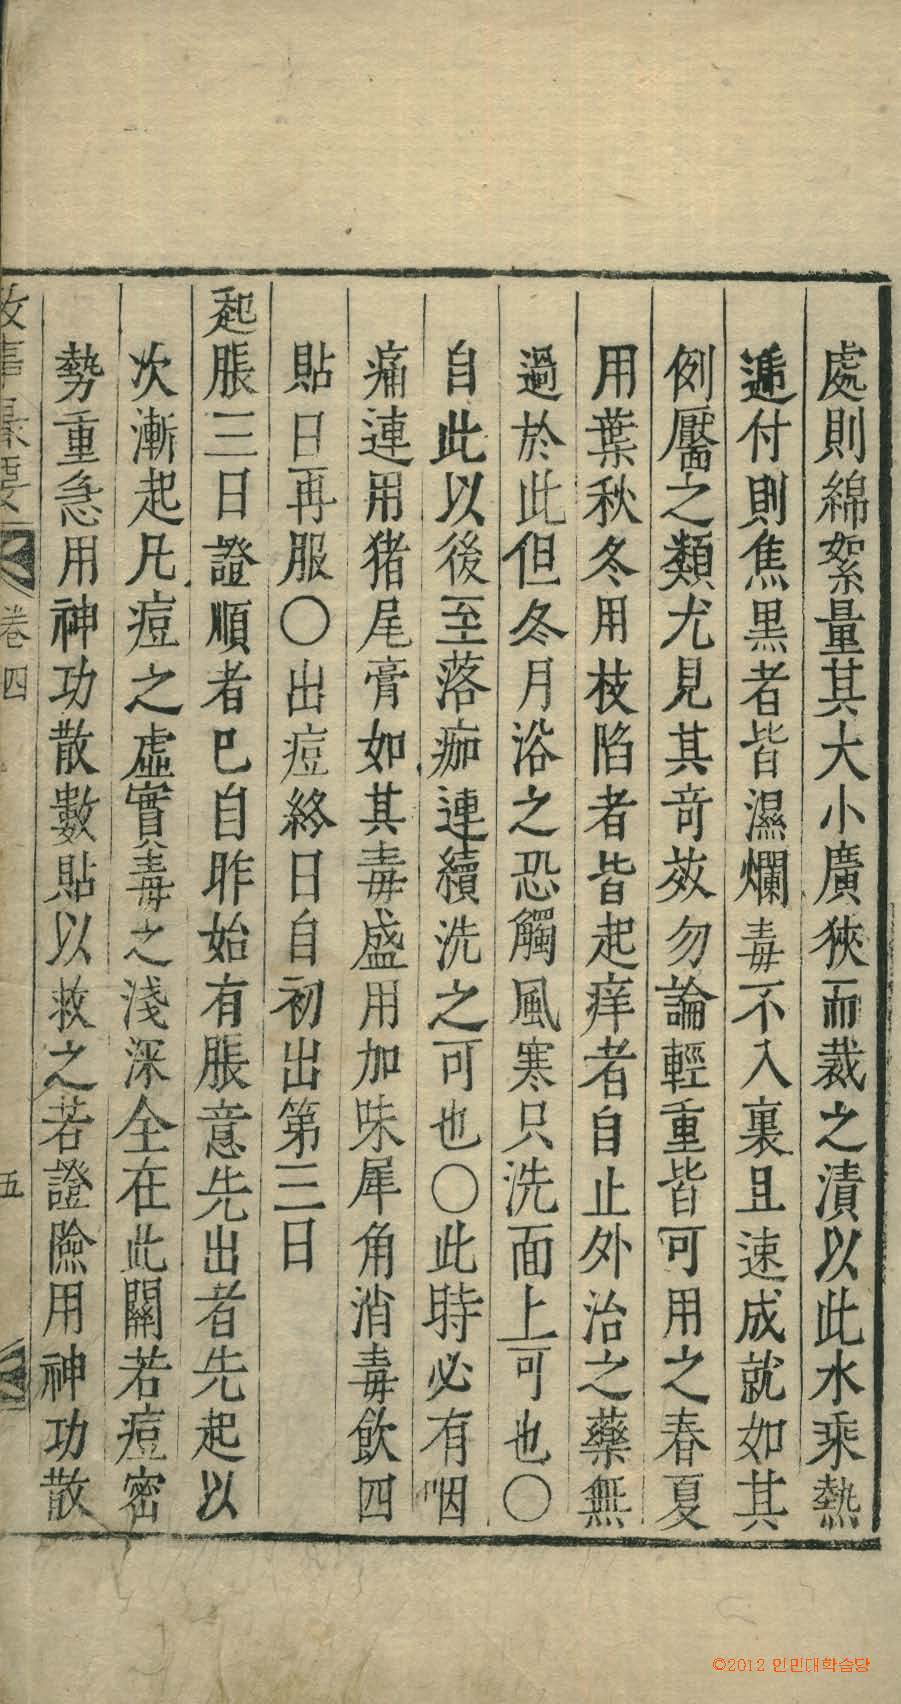 處則綿絮量其大小廣狹而裁之漬以此水乘熱
遞付則焦黑者皆濕爛毒不入裏且速成就如其
例壓之類尤見其竒效勿論輕重皆可用之春夏
用葉秋冬用枝陷者皆起痒者自止外治之藥無
過於此但冬月浴之恐觸風寒只洗面上可也〇
自此以後至落痂連續洗之可也〇此時必有咽
痛連用猪尾膏如其毒盛用加味犀角消毒飮四
貼日再服〇出痘終日自初出第三日
起脹三日證順者已自昨始有脹意先出者先起以
次漸起凡痘之虛實毒之淺深全在此關若痘密
勢重急用神功散數貼以救之若證險用神功散
卷四
五
©2012 인민대학습당